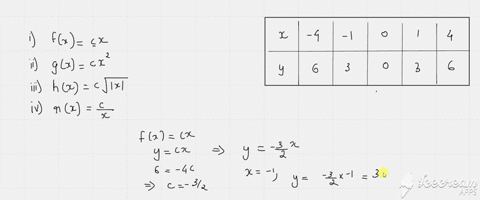 i) f(x) = cx
ii) g(x) = cx²
iii) h(x) = c√|x|
iv) r(x) = c/x
x -4 -1 0 1 4
y 6 3 0 3 6
f(x) = cx
y = cx ⇒ y = -3/2 x
6 = -4c
⇒ c = -3/2
x = -1; y = -3/2 x -1 = 3